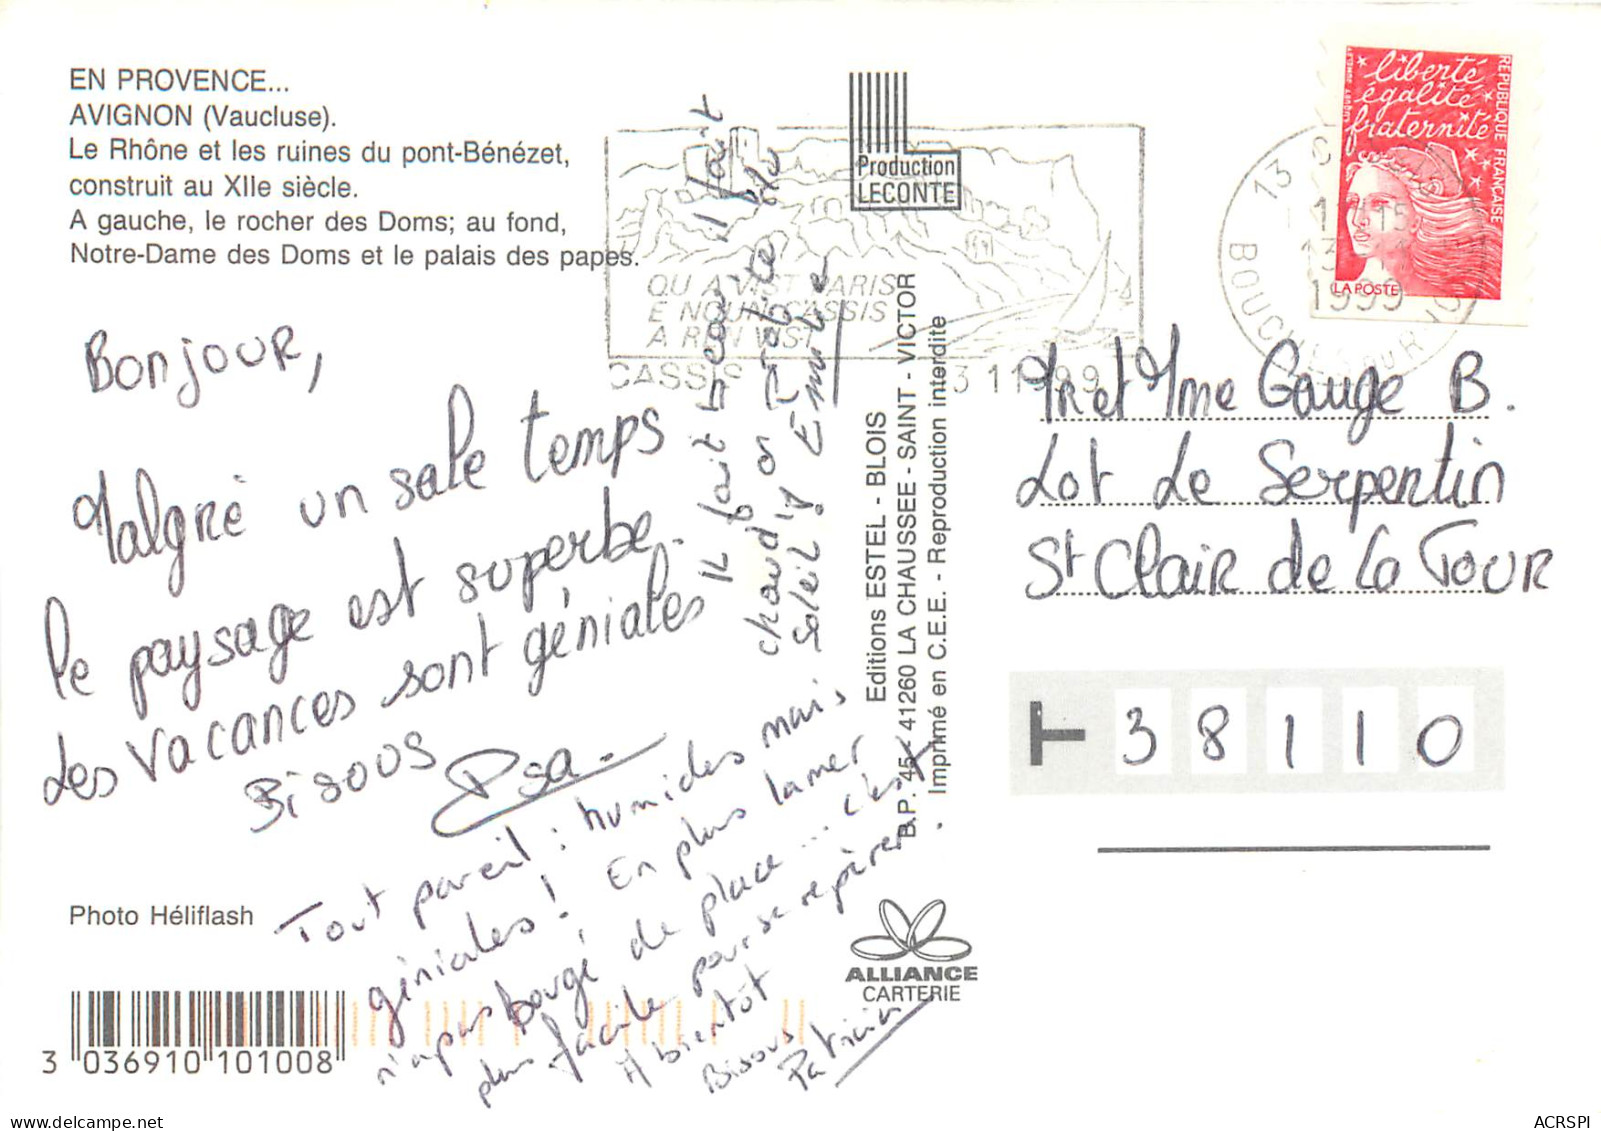 EN PROVENCE...
AVIGNON (Vaucluse).
Le Rhône et les ruines du pont-Bénézet,
construit au XIIe siècle.
A gauche, le rocher des Doms; au fond,
Notre-Dame des Doms et le palais des papes.
Production
LECONTE
QU A VIST PARIS
E NOUN CASSIS
A REN VIST
CASSIS
3 11 99
liberté
égalité
fraternité
RÉPUBLIQUE FRANÇAISE
LA POSTE
13
1999
BOUCHES DU R
Bonjour,
Malgré un sale temps
le paysage est superbe.
Les vacances sont géniales
Bisous
Isa.
Il fait beau il fait
chaud on habite
soleil! Emilie
Tout pareil : humides mais
géniales! En plus la mer
n'a pas bougé de place ... c'est
plus facile pour se repérer.
A bientôt
Bisous
Patricia
Editions ESTEL - BLOIS
B.P. 45 - 41260 LA CHAUSSEE - SAINT - VICTOR
Imprimé en C.E.E. - Reproduction interdite
Mr et Mme Gouge B.
Lot Le Serpentin
St Clair de La Tour
38110
Photo Héliflash
ALLIANCE
CARTERIE
3 036910 101008
www.delcampe.net
ACRSPI